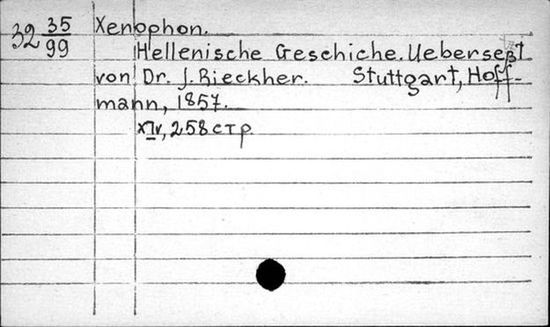 32 35/99 Xenophon.
Hellenische Geschiche. Ueberseßt
von Dr. J. Rieckher. Stuttgart, Hoff-
mann, 1857.
XIV, 258 стр.